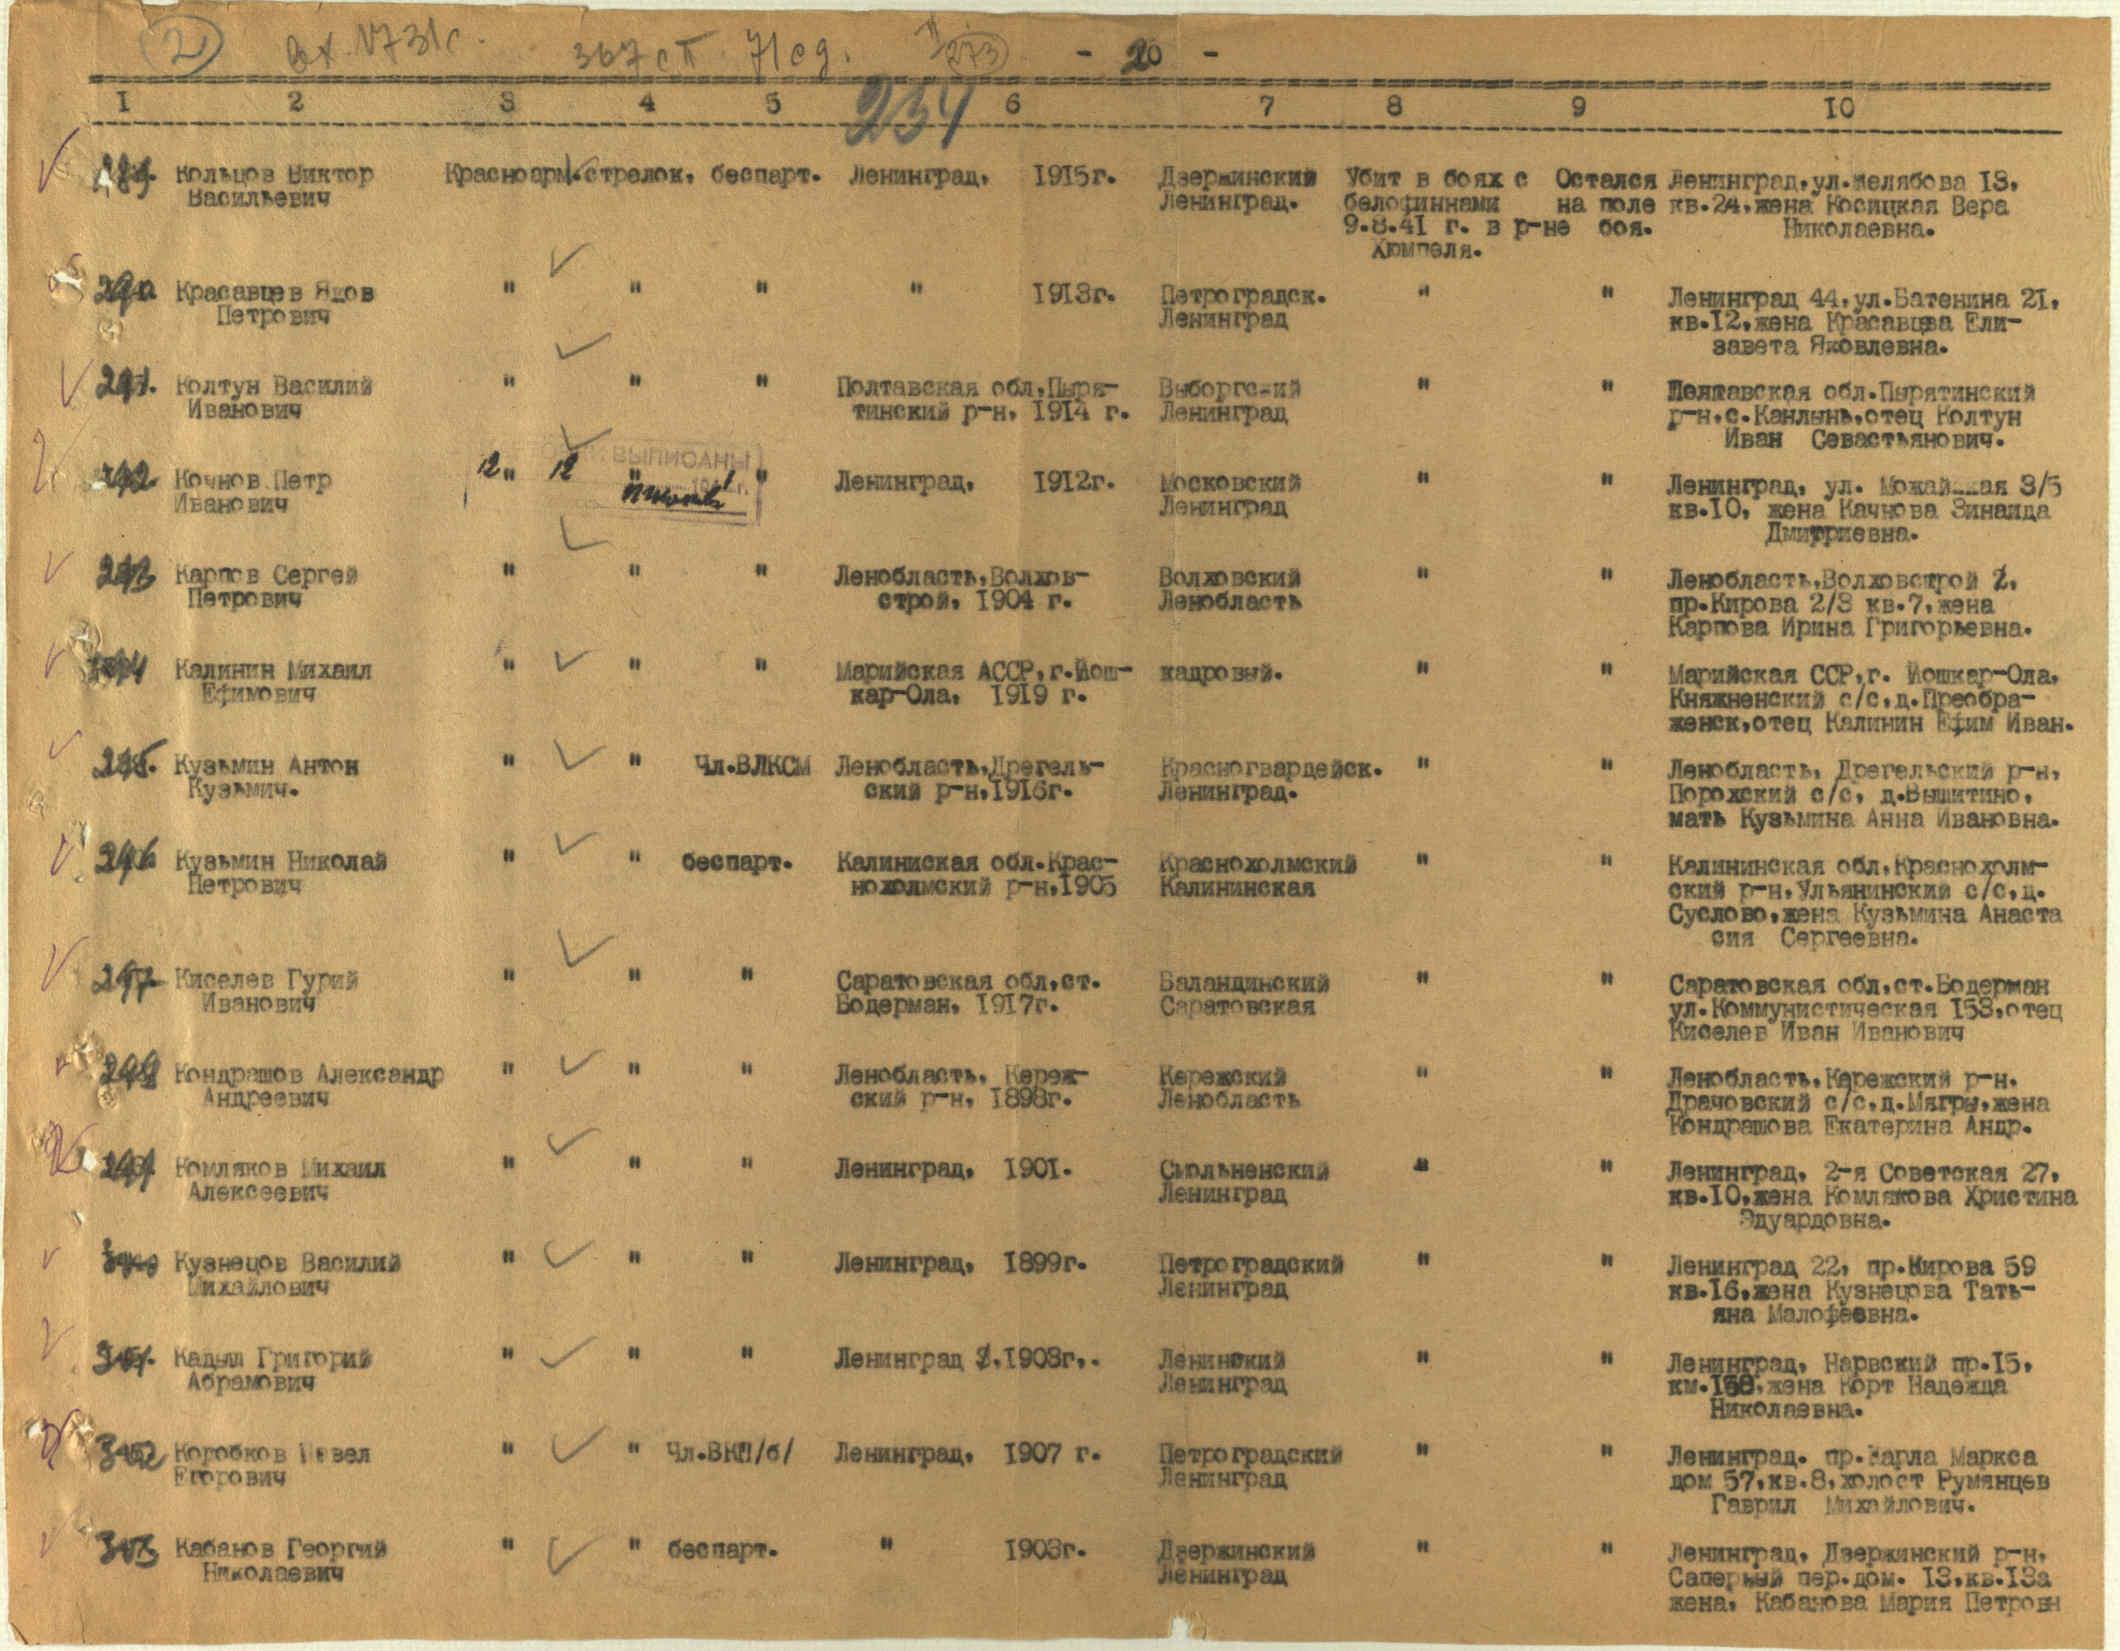 2 вх. 1731с. 367 сп 71 сд. 273 - 20 -
I 2 3 4 5 6 7 8 9 I0
234
289. Кольцов Виктор Красноарм. стрелок. беспарт. Ленинград, 1915г. Дзержинский Убит в боях с Остался Ленинград,ул.Желябова 13,
Васильевич Ленинград. белофиннами на поле кв.24,жена Косицкая Вера
9.8.41 г. в р-не боя. Николаевна.
Хюмпеля.
290 Красавцев Яков " " " " 1913г. Петроградск. " " Ленинград 44,ул.Батенина 21,
Петрович Ленинград кв.12,жена Красавцева Ели-
завета Яковлевна.
291. Колтун Василий " " " Полтавская обл,Пыря- Выборгский " " Полтавская обл.Пырятинский
Иванович тинский р-н, 1914 г. Ленинград р-н,с.Канлынь,отец Колтун
Иван Севастьянович.
ВЫПИСАНЫ
292 Кочнов Петр 12 " 12 " " Ленинград, 1912г. Московский " " Ленинград, ул. Можайская 3/5
Иванович Ленинград кв.10, жена Качнова Зинаида
Дмитриевна.
293 Карпов Сергей " " " Ленобласть,Волхов- Волховский " " Ленобласть,Волховстрой 2,
Петрович строй, 1904 г. Ленобласть пр.Кирова 2/3 кв.7,жена
Карпова Ирина Григорьевна.
294 Калинин Михаил " " " Марийская АССР,г.Йош- кадровый. " " Марийская ССР,г. Йошкар-Ола,
Ефимович кар-Ола, 1919 г. Княжненский с/с,д.Преобра-
женск,отец Калинин Ефим Иван.
295. Кузьмин Антон " " Чл.ВЛКСМ Ленобласть,Дрегель- Красногвардейск. " " Ленобласть, Дрегельский р-н,
Кузьмич. ский р-н,1916г. Ленинград. Порохский с/с, д.Вышитино,
мать Кузьмина Анна Ивановна.
296 Кузьмин Николай " " беспарт. Калиниская обл.Крас- Краснохолмский " " Калининская обл,Краснохолм-
Петрович нохолмский р-н,1905 Калининская ский р-н,Ульянинский с/с,д.
Суслово,жена Кузьмина Анаста
сия Сергеевна.
297 Киселев Гурий " " " Саратовская обл,ст. Баландинский " " Саратовская обл,ст.Бодерман
Иванович Бодерман, 1917г. Саратовская ул.Коммунистическая 153,отец
Киселев Иван Иванович
298 Кондрашов Александр " " " Ленобласть, Кереж- Кережский " " Ленобласть,Кережский р-н,
Андреевич ский р-н, 1898г. Ленобласть Драчовский с/с,д.Мягры,жена
Кондрашова Екатерина Андр.
299 Комляков Михаил " " " Ленинград, 1901. Смольненский " " Ленинград, 2-я Советская 27,
Алексеевич Ленинград кв.10,жена Комлякова Христина
Эдуардовна.
300 Кузнецов Василий " " " Ленинград, 1899г. Петроградский " " Ленинград 22, пр.Кирова 59
Михайлович Ленинград кв.16,жена Кузнецова Тать-
яна Малофеевна.
301. Кадыш Григорий " " " Ленинград 2,1903г,. Ленинский " " Ленинград, Нарвский пр.15,
Абрамович Ленинград км.158,жена Корт Надежда
Николаевна.
302 Коробков Павел " " Чл.ВКП/б/ Ленинград, 1907 г. Петроградский " " Ленинград. пр.Карла Маркса
Егорович Ленинград дом 57,кв.8,холост Румянцев
Гаврил Михайлович.
303 Кабанов Георгий " " беспарт. " 1903г. Дзержинский " " Ленинград, Дзержинский р-н,
Николаевич Ленинград Саперный пер.дом. 13,кв.13а
жена, Кабанова Мария Петровн